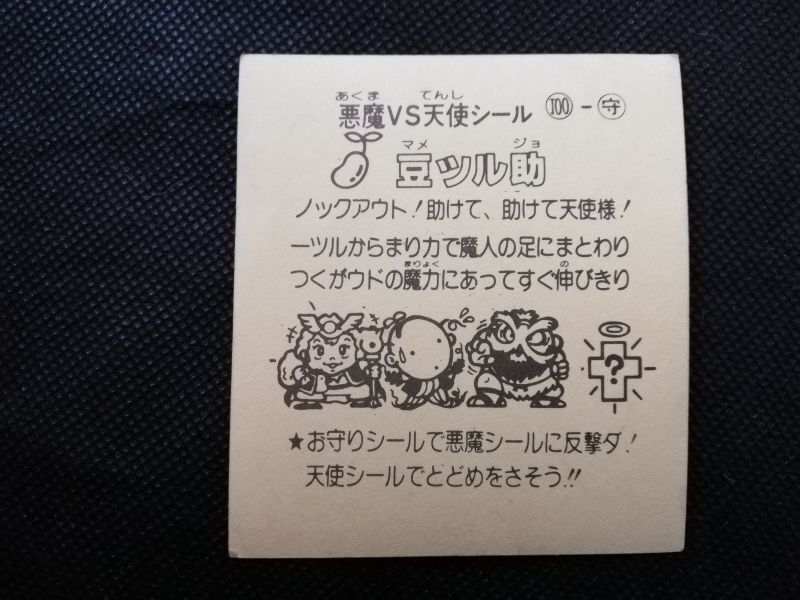 あくま てんし
悪魔VS天使シール 100-守
マメ ジョ
豆ツル助
ノックアウト!助けて、助けて天使様!
一ツルからまり力で魔人の足にまとわり
まりょく の
つくがウドの魔力にあってすぐ伸びきり
?
★お守りシールで悪魔シールに反撃ダ!
天使シールでとどめをさそう!!